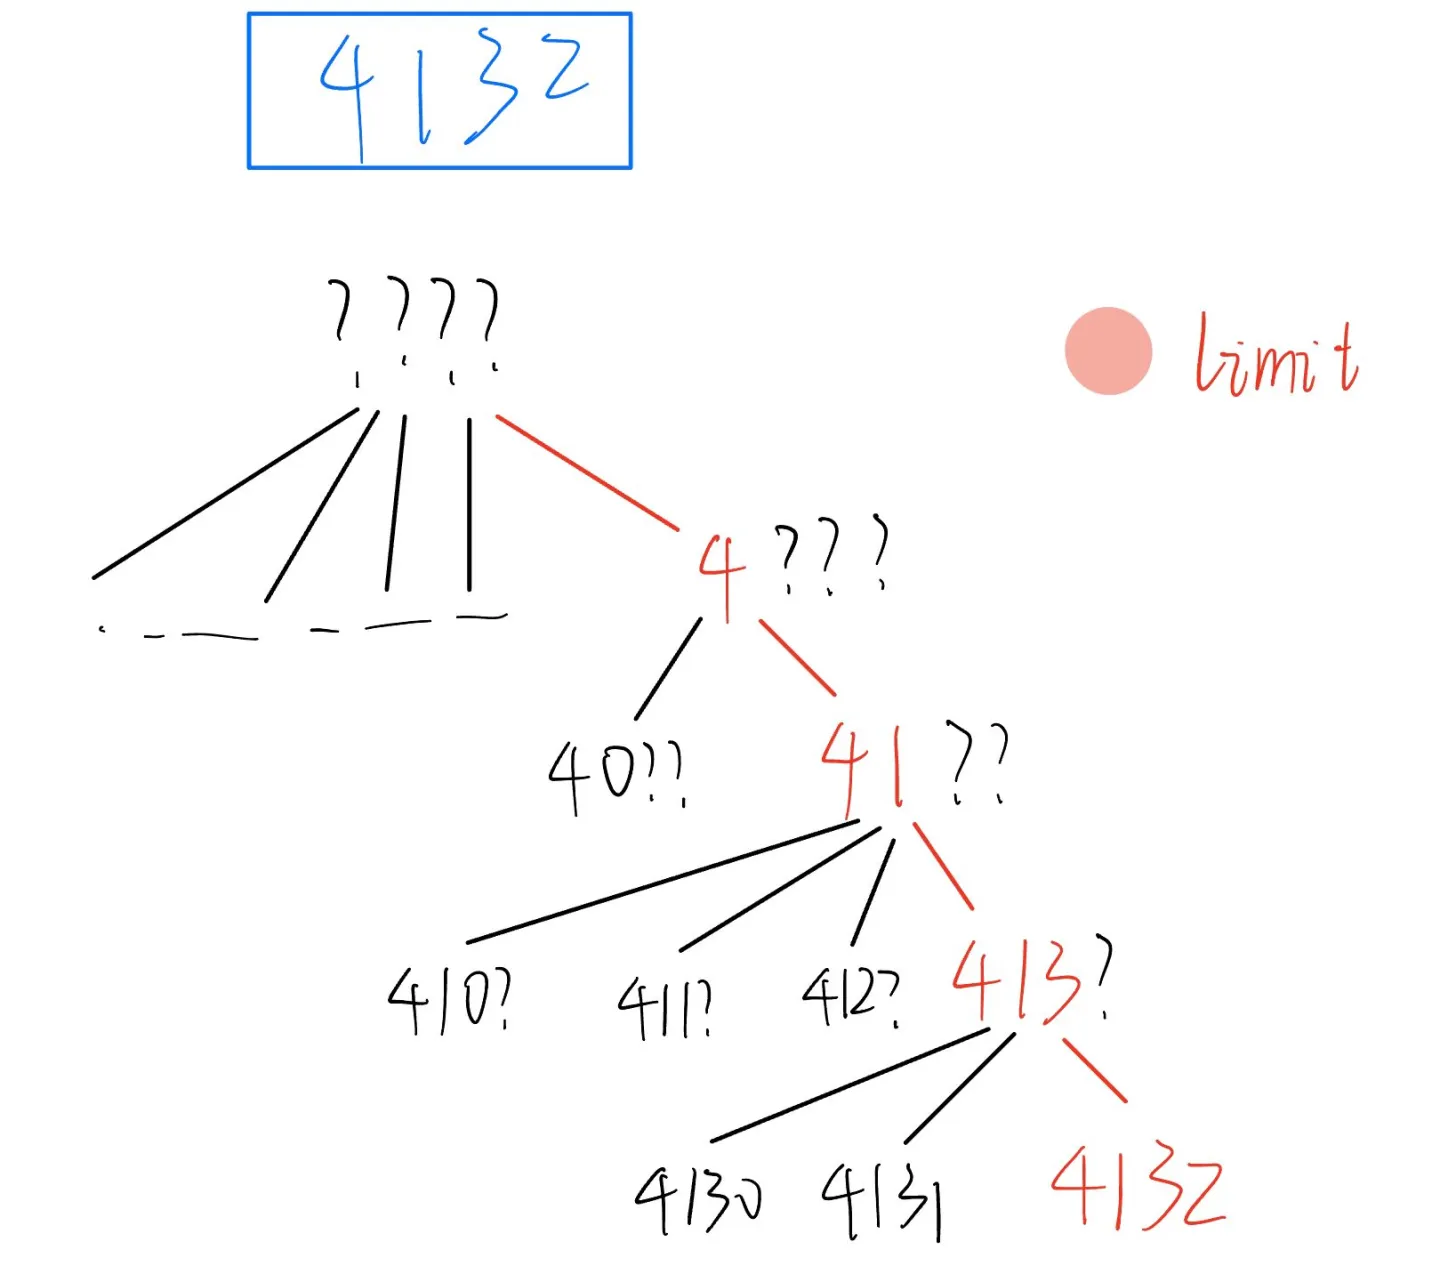 4132
????
limit
4???
40??
41??
410?
411?
412?
413?
4130
4131
4132